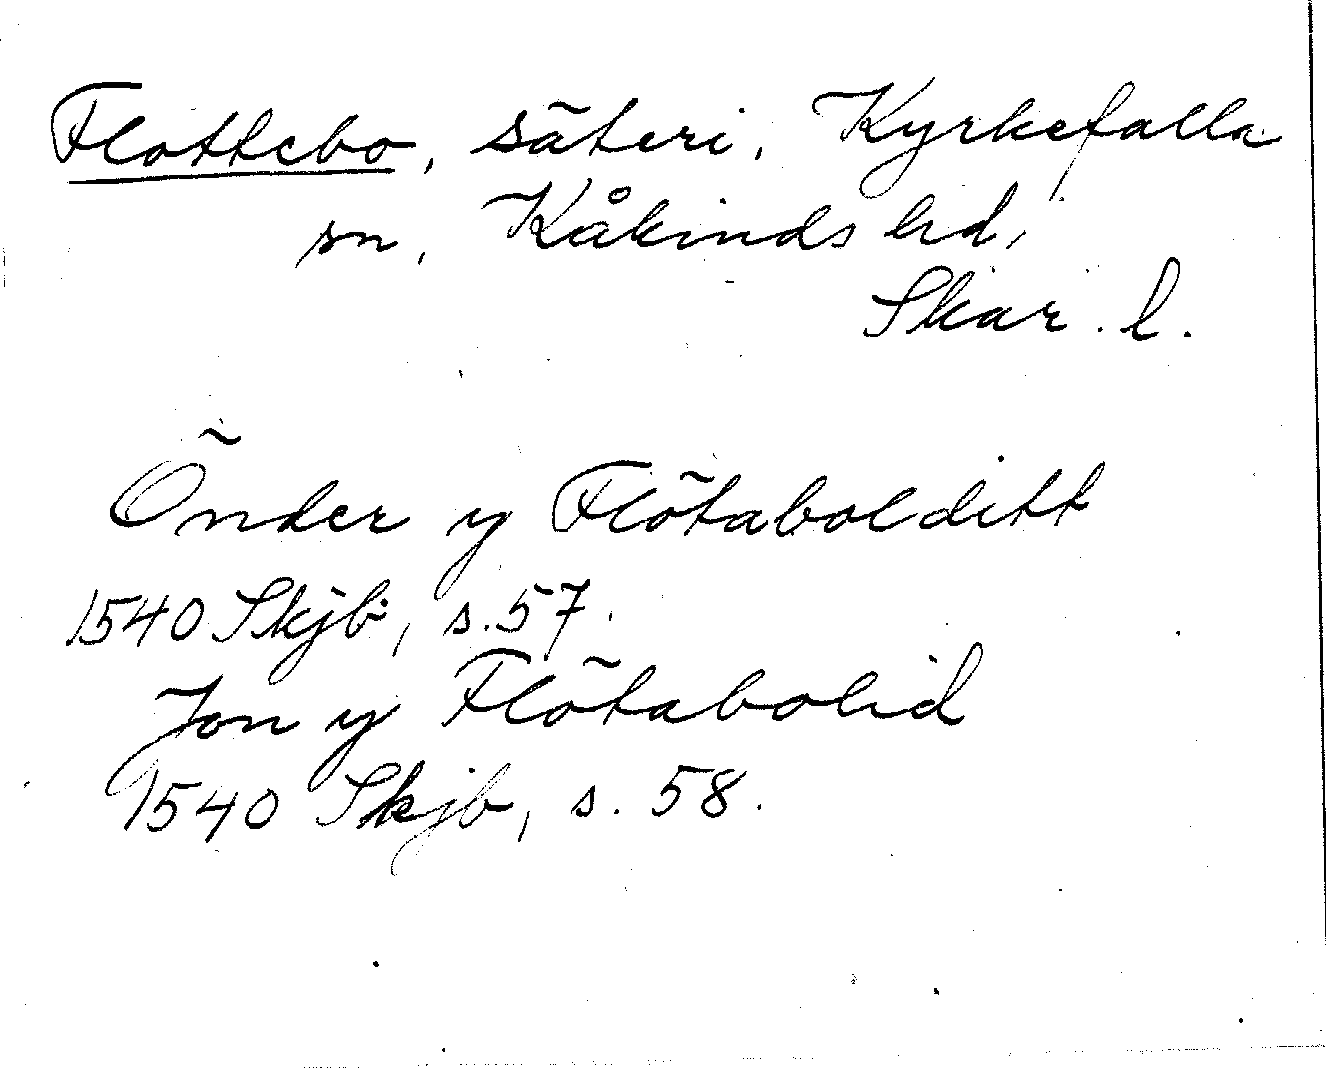 Flottebo, säteri, Kyrkefalla
sn, Kåkinds hd,
Skar. l.
Önder y Flötabolditt
1540 Skjb, s. 57.
Jon y Flötabolid
1540 Skjb, s. 58.